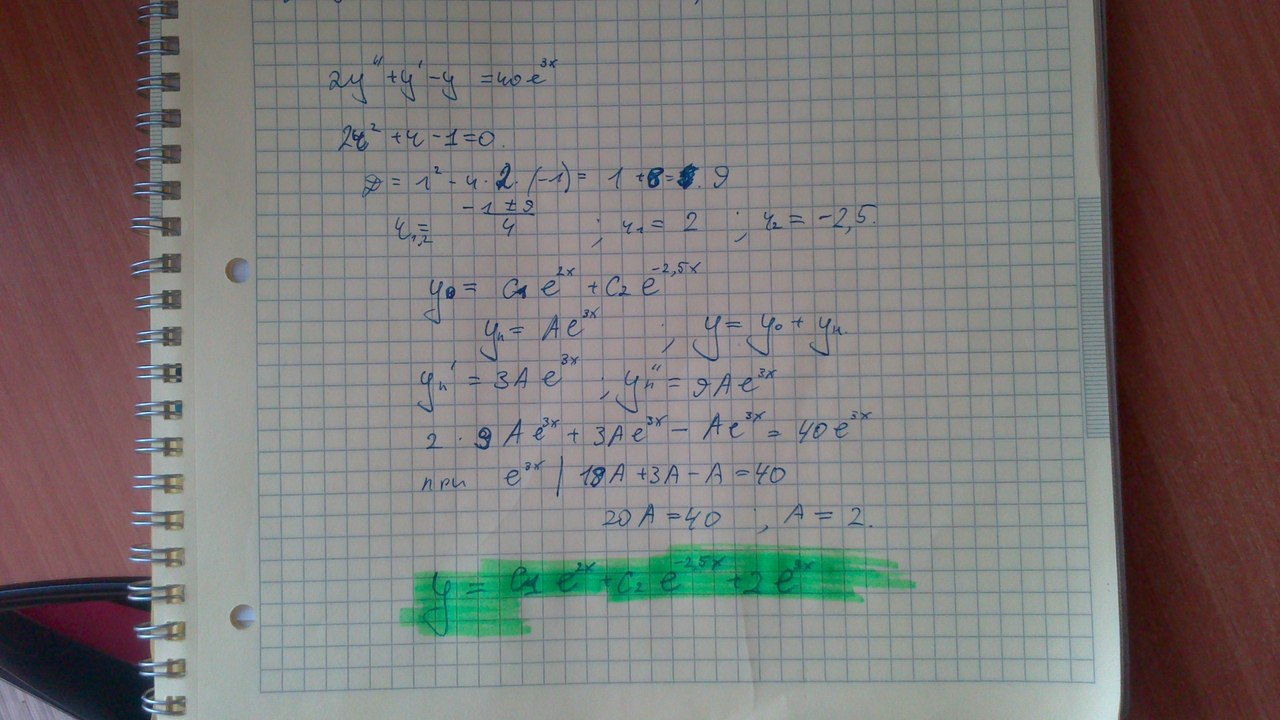 2y'' + y' - y = 40e^{3x}
2r² + r - 1 = 0.
D = 1² - 4 · 2 · (-1) = 1 + 8 = 9
r_{1,2} = \frac{-1 ± 9}{4} ; r_1 = 2 ; r_2 = -2,5.
y_0 = C_1 e^{2x} + C_2 e^{-2,5x}
y_н = Ae^{3x} ; y = y_0 + y_н.
y_н' = 3Ae^{3x} ; y_н'' = 9Ae^{3x}
2 · 9 Ae^{3x} + 3Ae^{3x} - Ae^{3x} = 40e^{3x}
при e^{3x} | 18A + 3A - A = 40
20A = 40 ; A = 2.
y = C_1 e^{2x} + C_2 e^{-2,5x} + 2e^{3x}